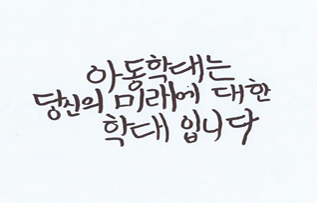 아동학대는
당신의 미래에 대한
학대 입니다